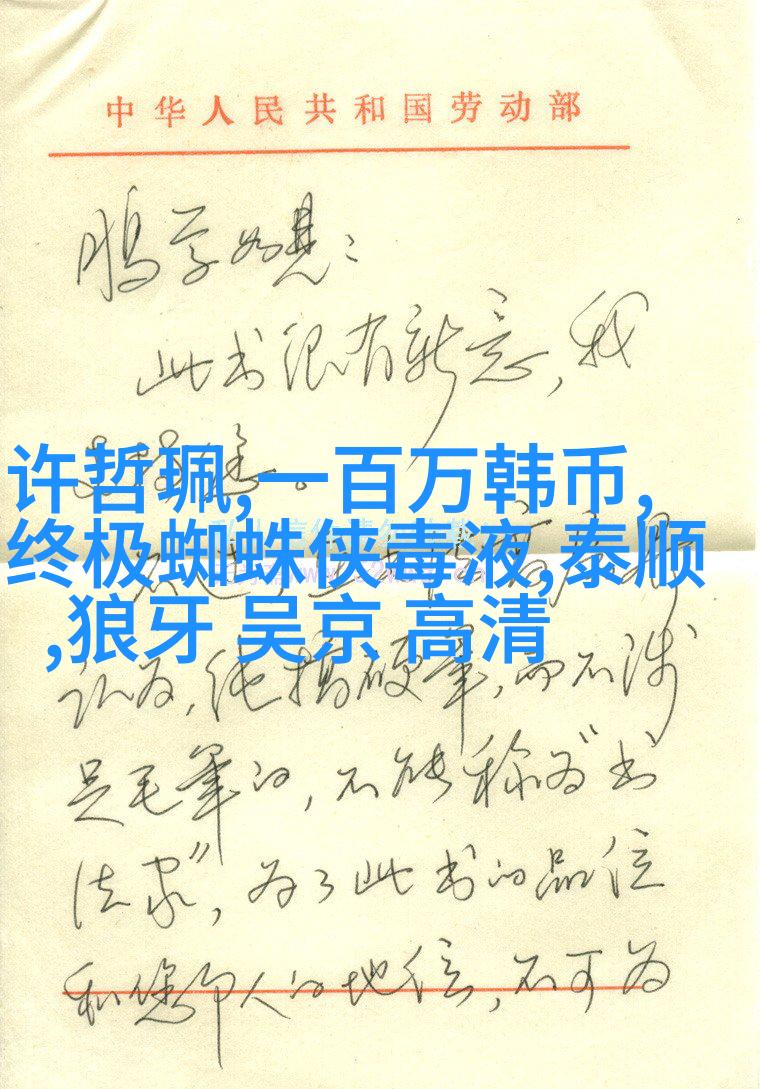 中华人民共和国劳动部
鹏
此书很有新意,我
许哲珮,一百万韩币,
终极蜘蛛侠毒液,泰顺
,狼牙 吴京 高清
认为,纯搞硬筆,而不涉
足毛筆的,不能称为“书
法家”,为了此书的品位
和您个人的地位,不可为